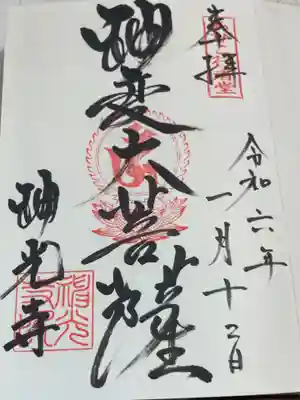 奉拝
令和六年
一月十二日
神変大菩薩
神光寺